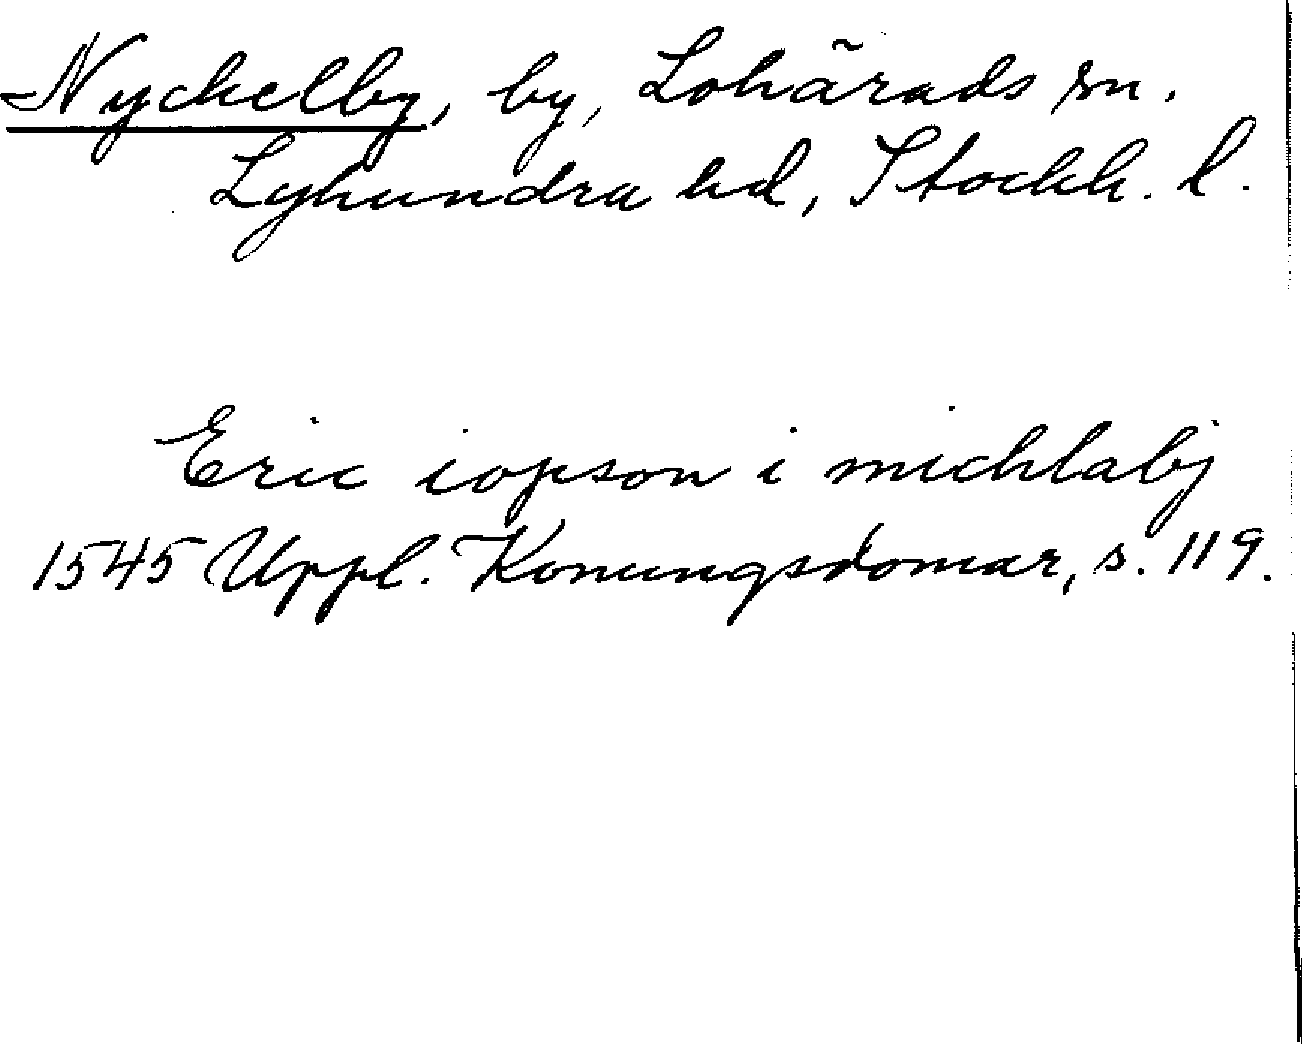 Nyckelby, by, Lohärads sn.
Lyhundra hd, Stockh. l.
Eric iopson i michlabÿ
1545 Uppl. Konungsdomar, s. 119.